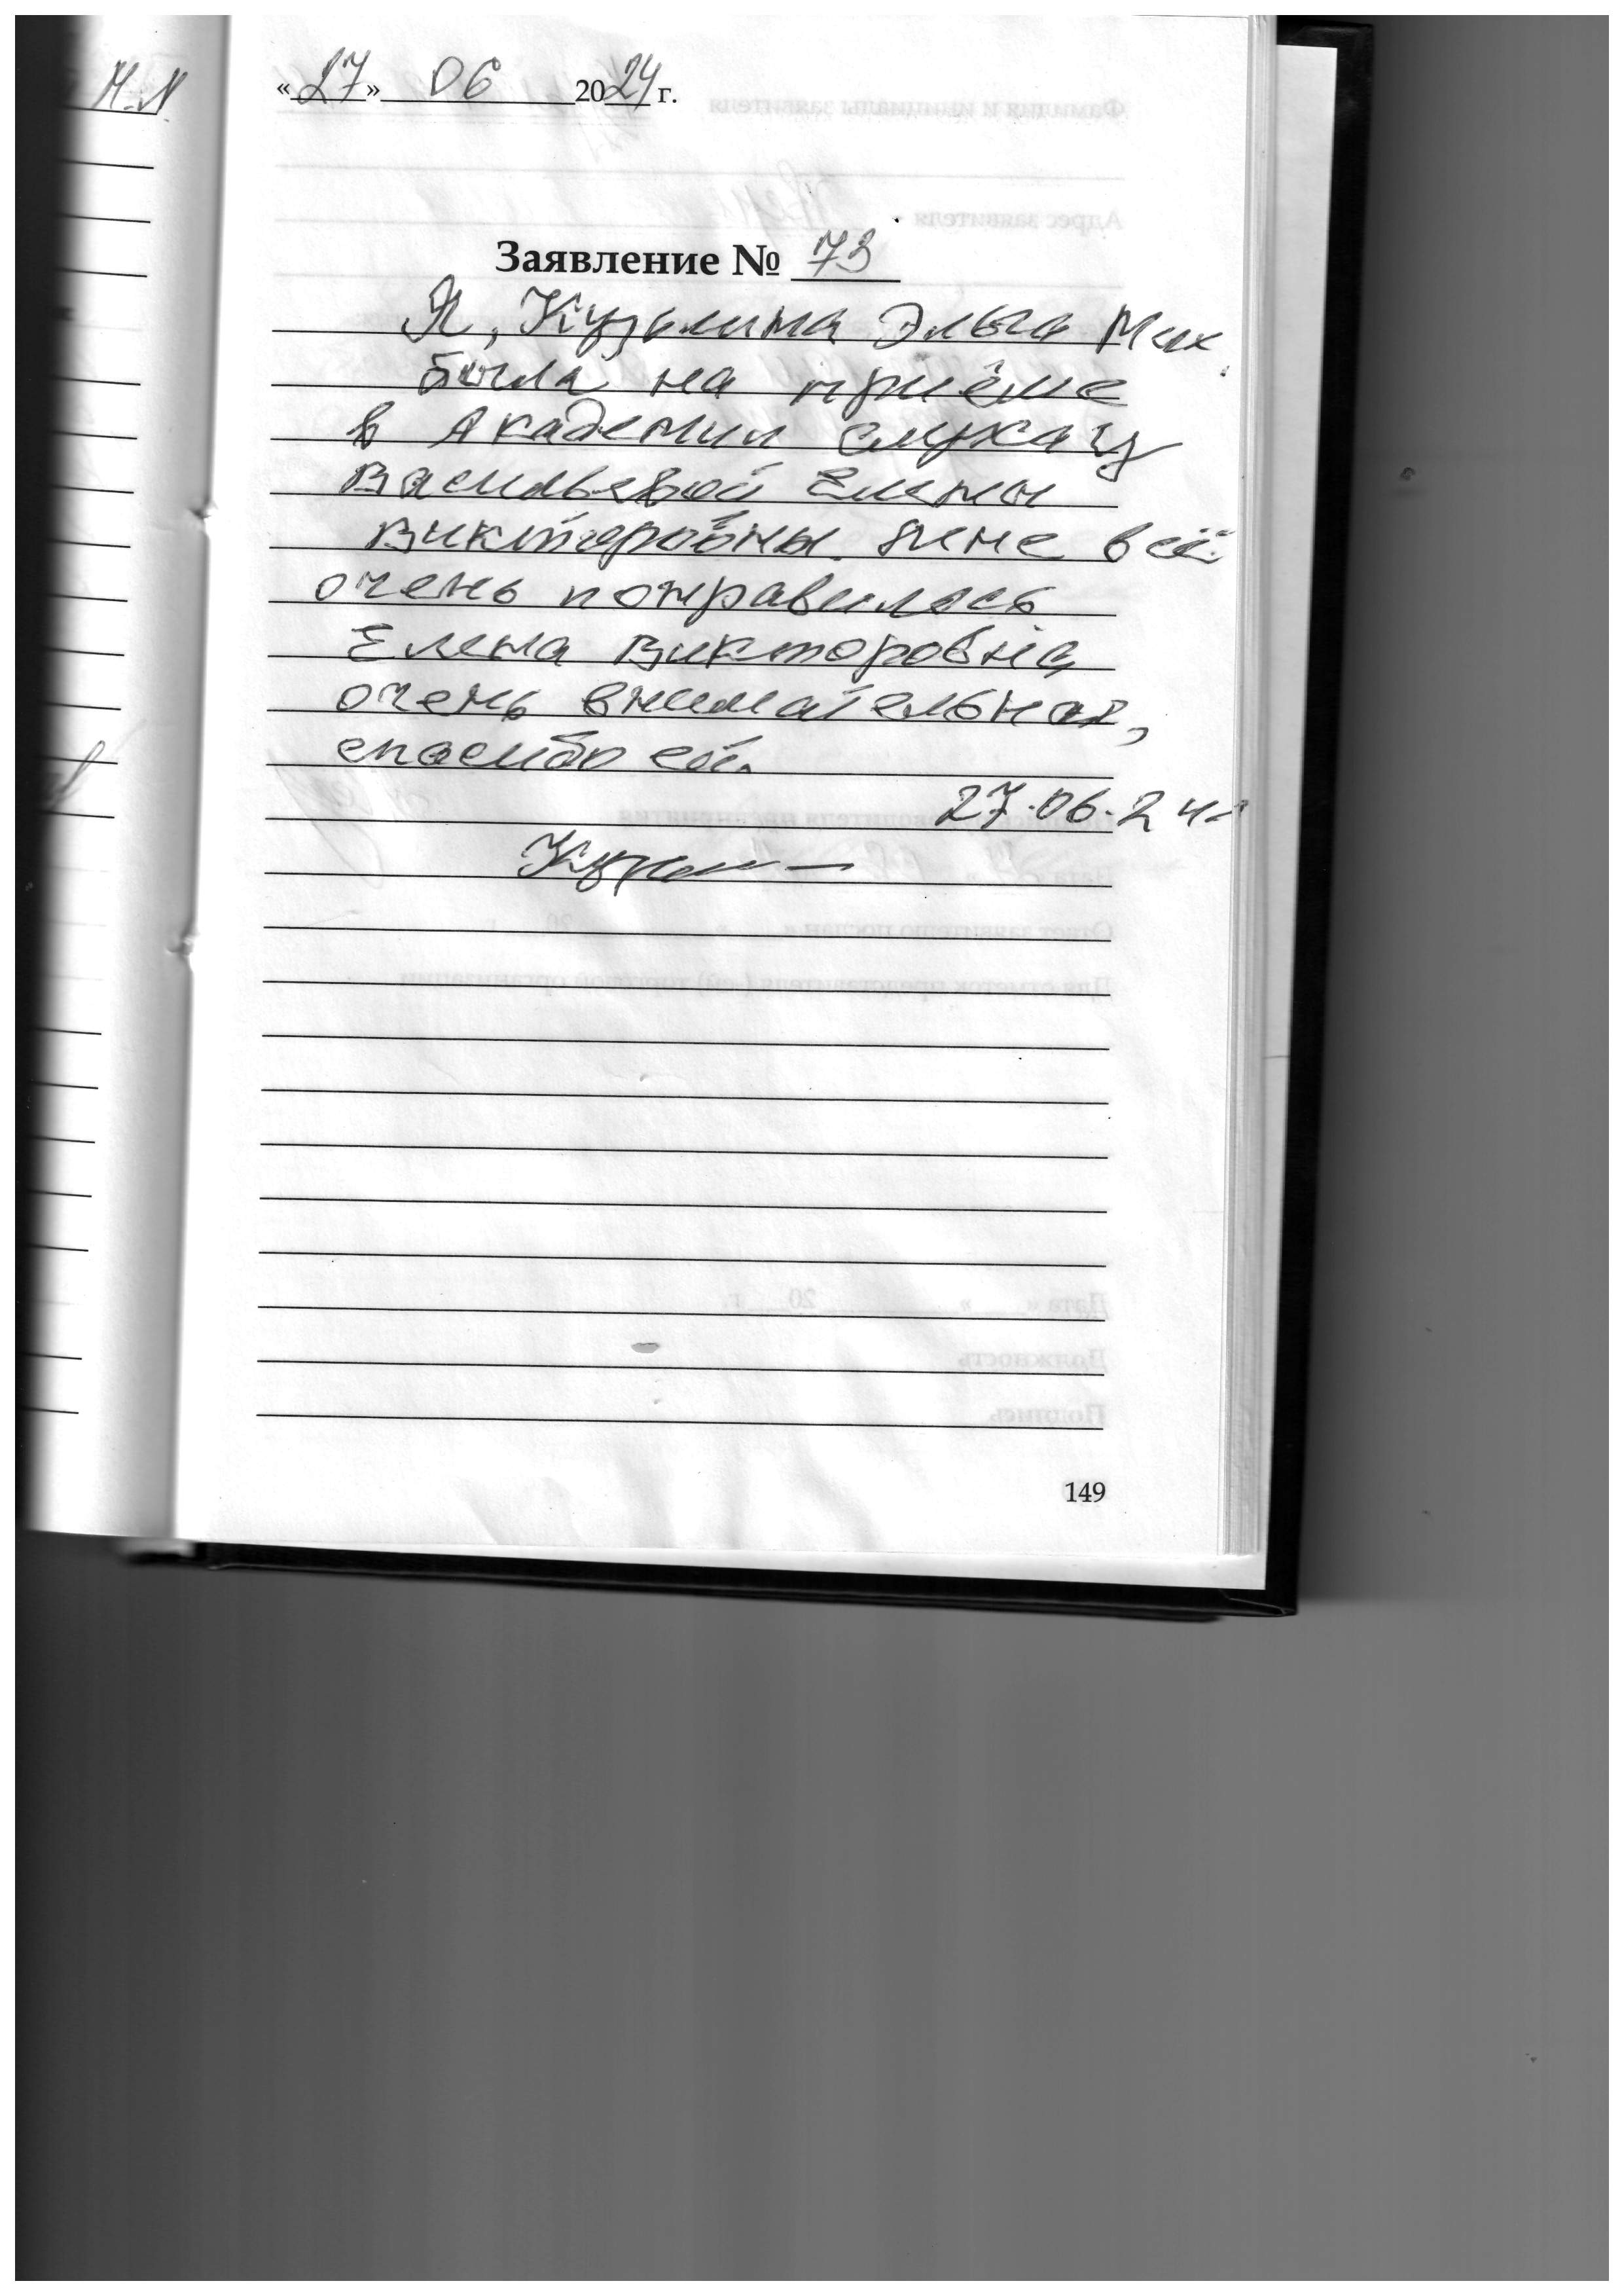 «27» 06 2024 г.
Заявление № 73
Я, Кузьмина Эльга Мих.
была на приёме
в Академии слуха у
Васильевой Елены
Викторовны. мне всё
очень понравилось
Елена Викторовна,
очень внимательная,
спасибо ей.
27.06.24г
149